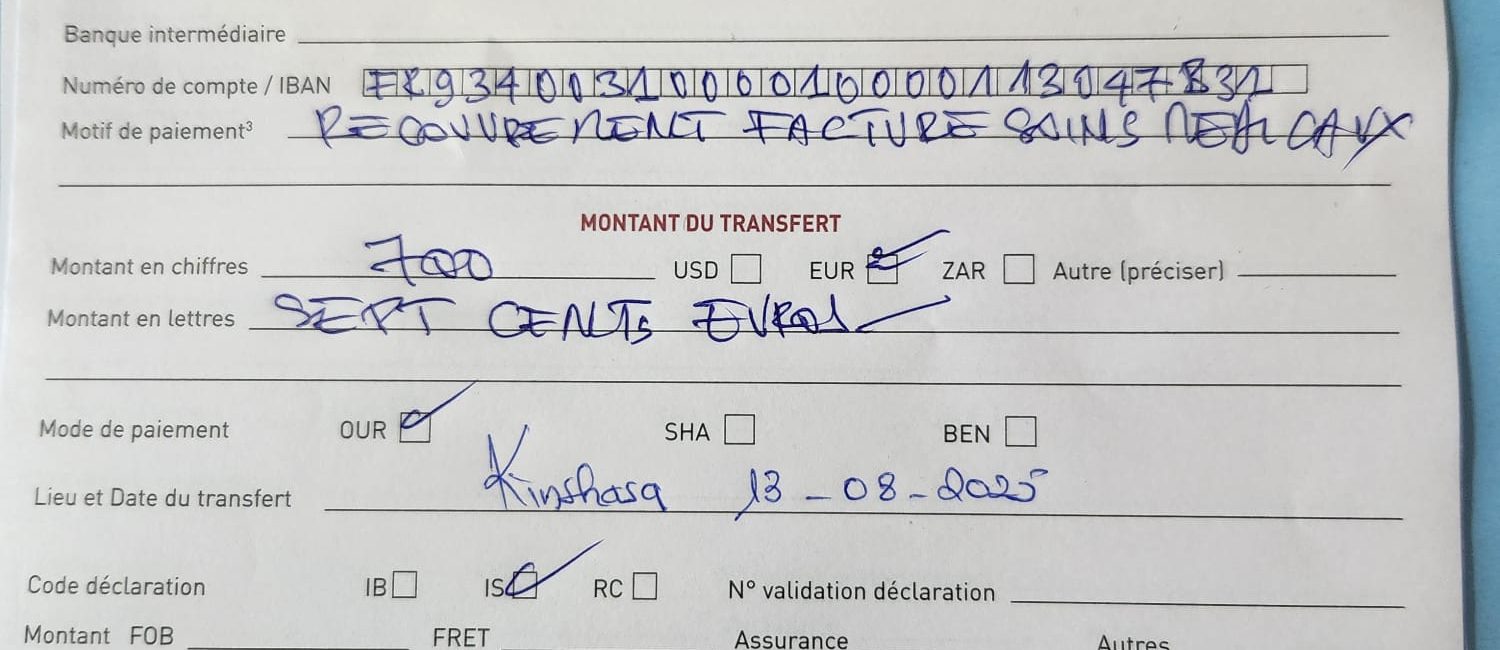 Banque intermédiaire
Numéro de compte / IBAN FR9340031000010000113047B31
Motif de paiement³ RECOUVREMENT FACTURE SOINS MEDICAUX
MONTANT DU TRANSFERT
Montant en chiffres 700 USD EUR ZAR Autre (préciser)
Montant en lettres SEPT CENTS EUROS
Mode de paiement OUR SHA BEN
Lieu et Date du transfert Kinshasa 13-08-2025
Code déclaration IB IS RC N° validation déclaration
Montant FOB FRET Assurance Autres